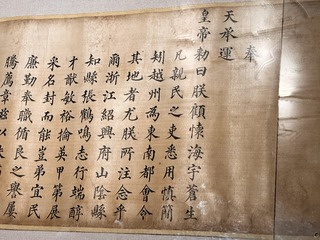 奉
天承運
皇帝勅曰朕顧懷海宇蒼生
凡親民之吏悉用慎簡
矧越州為東南都會令
其地者尤朕所注念乎
爾浙江紹興府山陰縣
知縣張鶴鳴志行端醇
才猷敏裕掄英甲第展
采名封而能豈弟宜民
廉勤奉職循良之譽屢
騰薦章茲以